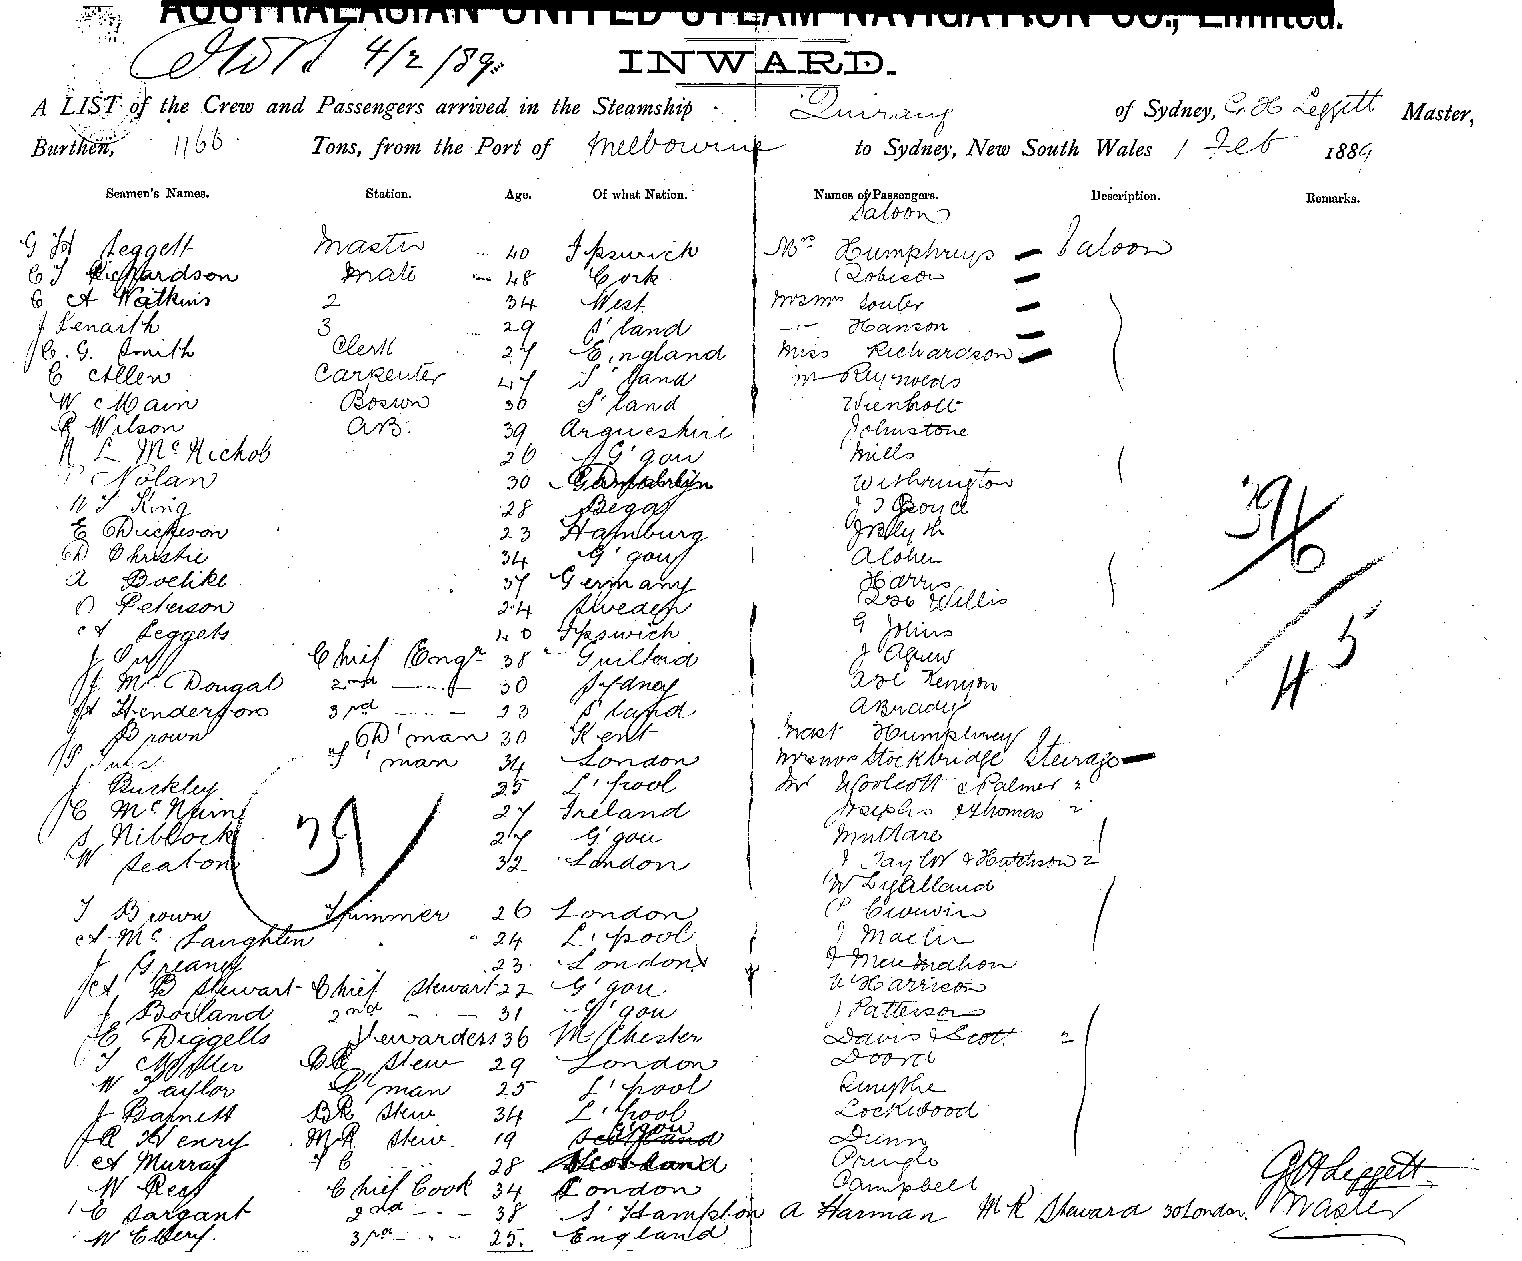 AUSTRALASIAN UNITED STEAM NAVIGATION CO., Limited.
4/2/89.
INWARD.
A LIST of the Crew and Passengers arrived in the Steamship Quiraing of Sydney, G H Leggett Master,
Burthen, 1166 Tons, from the Port of Melbourne to Sydney, New South Wales 1 Feb 1889
Seamen's Names. Station. Age. Of what Nation. Names of Passengers. Description. Remarks.
Saloon
G H Leggett Master 40 Ipswich Mrs Humphreys Saloon
C J Richardson Mate 48 Cork Robison
C A Watkins 2 34 West. Mr & Mrs Souter
J Lenaith 3 29 S'land Hanson
C. G. Smith Clerk 27 England Miss Richardson
C Allen Carpenter 47 S'land Mr Reynolds
W Main Bosun 30 S'land Wienholt
R Wilson AB. 39 Argyleshire Johnstone
N L McNichol 26 G'gow Mills
Nolan 30 Withrington
W J King 28 J J Boyd
E Dickeson 23 Hamburg J Blyth
D Christie 34 G'gow
A Boelike 37 Germany Harris
O Peterson 24 Sweden Geo Willis
A Leggets 40 Ipswich G Johns
J Chief Engr 38 Guilford J Agnew
J McDougal 2nd 30 Sydney Kenyon
A Henderson 3rd 23 S'land A Brady
J Brown D'man 30 Kent Mast Humphrey
F'man 34 London Mr & Mrs Stockbridge Steerage
J Buckley 25 L'pool Mr Woolcott & Palmer 2
C McNairn 27 Ireland Josephs & Thomas 2
S Niblock 27 G'gow
W Seaton 32 London J Taylor & Hutchison 2
39/6
45
39
W Lyalland
T Brown Trimmer 26 London
A McLaughlin 24 L'pool J
J Greaney 23 London
A B Stewart Chief Stewart 22 G'gow Harrison
J Borland 2nd 31 G'gow J Patterson
E Diggells Stewardess 36 M'chester Davis & Scott 2
T Miller Stew 29 London Doord
W Taylor P'man 25 L'pool Smythe
J Barnett BR Stew. 34 L'pool Lockwood
R Henry MR Stew. 19 G'gow Dunn
A Murray 28 Scotland Pringle
W Rees Chief Cook 34 London Campbell
C Sargant 2nd 38 S'Hampton A Harman M R Steward 30 London.
W Ellery. 3rd 25. England
G H Leggett
Master